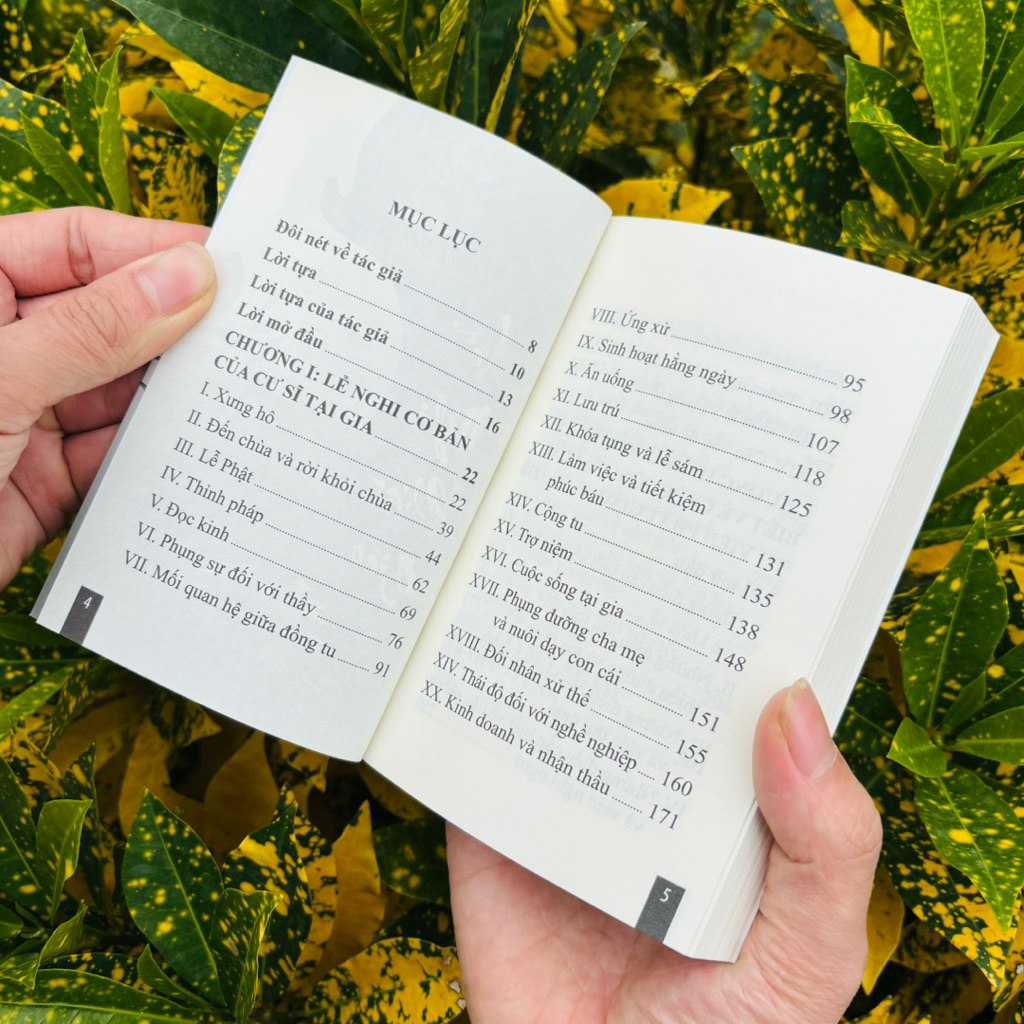 MỤC LỤC
Đôi nét về tác giả ........ 8
Lời tựa ........ 10
Lời tựa của tác giả ........ 13
Lời mở đầu ........ 16
CHƯƠNG I: LỄ NGHI CƠ BẢN
CỦA CƯ SĨ TẠI GIA ........ 22
I. Xưng hô ........ 22
II. Đến chùa và rời khỏi chùa ........ 39
III. Lễ Phật ........ 44
IV. Thỉnh pháp ........ 62
V. Đọc kinh ........ 69
VI. Phụng sự đối với thầy ........ 76
VII. Mối quan hệ giữa đồng tu ........ 91
4
VIII. Ứng xử ........ 95
IX. Sinh hoạt hằng ngày ........ 98
X. Ăn uống ........ 107
XI. Lưu trú ........ 118
XII. Khóa tụng và lễ sám ........ 125
XIII. Làm việc và tiết kiệm
phúc báu ........ 131
XIV. Cộng tu ........ 135
XV. Trợ niệm ........ 138
XVI. Cuộc sống tại gia ........ 148
XVII. Phụng dưỡng cha mẹ
và nuôi dạy con cái ........ 151
XVIII. Đối nhân xử thế ........ 155
XIV. Thái độ đối với nghề nghiệp ........ 160
XX. Kinh doanh và nhận thầu ........ 171
5